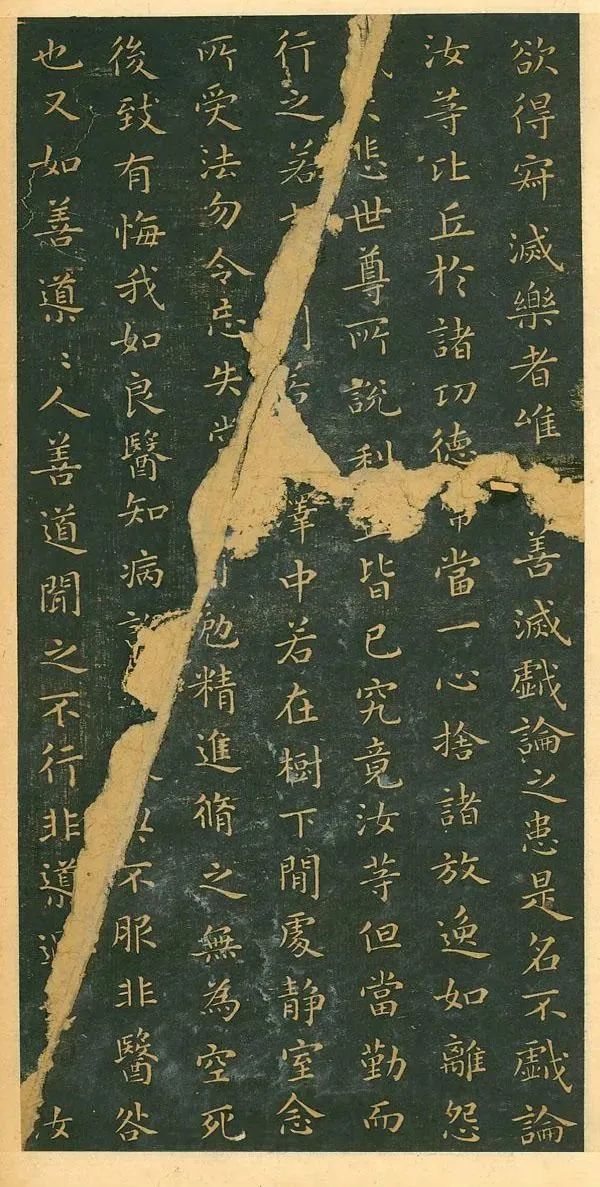 欲得寂滅樂者唯善滅戲論之患是名不戲論
汝等比丘於諸功德常當一心捨諸放逸如離怨
悲世尊所說利皆已究竟汝等但當勤而
行之若中若在樹下閒處靜室念
所受法勿令忘失勉精進脩之無為空死
後致有悔我如良醫知病不服非醫咎
也又如善導〻人善道聞之不行非導汝